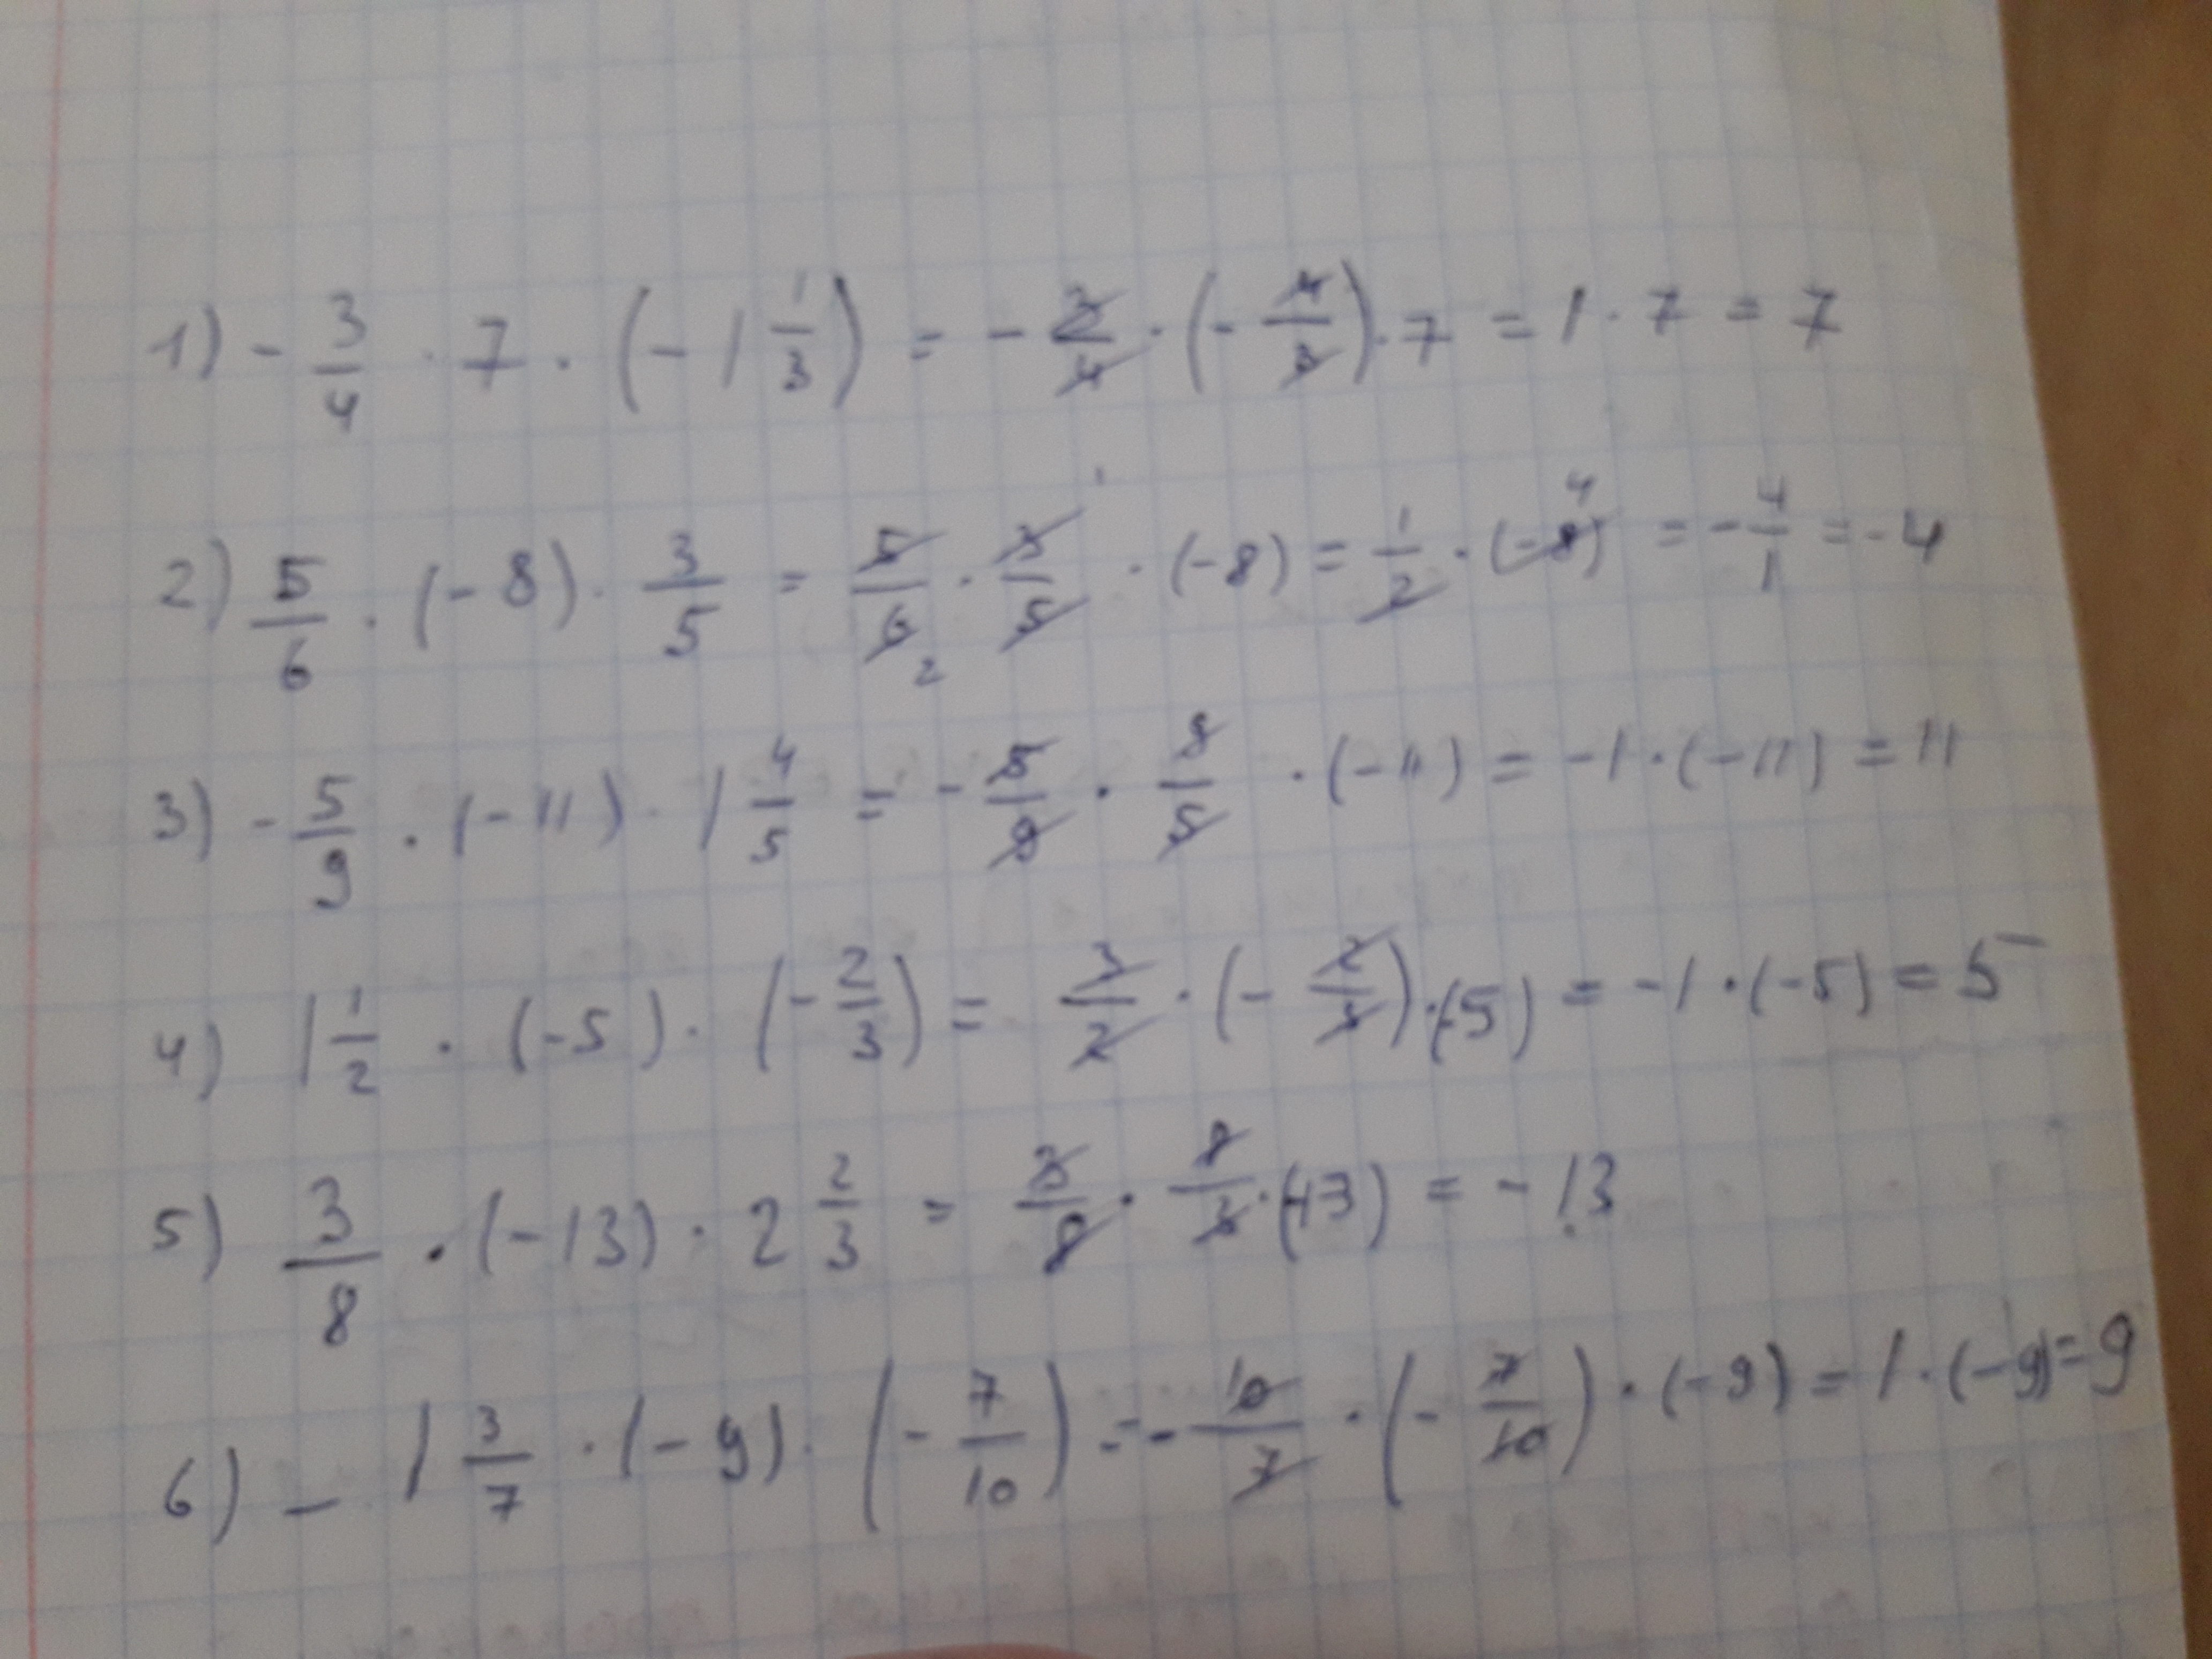 1) - 3/4 · 7 · (- 1 1/3) = - 3/4 · (- 4/3) · 7 = 1 · 7 = 7
2) 5/6 · (-8) · 3/5 = 5/6 2 · 3/5 1 · (-8) = 1/2 · (-8) 4 = - 4/1 = -4
3) - 5/9 · (-11) · 1 4/5 = - 5/9 · 9/5 · (-11) = -1 · (-11) = 11
4) 1 1/2 · (-5) · (- 2/3) = 3/2 · (- 2/3) · (-5) = -1 · (-5) = 5
5) 3/8 · (-13) · 2 2/3 = 3/8 · 8/3 · (-13) = - 13
6) - 1 3/7 · (-9) · (- 7/10) = - 10/7 · (- 7/10) · (-9) = 1 · (-9) = 9